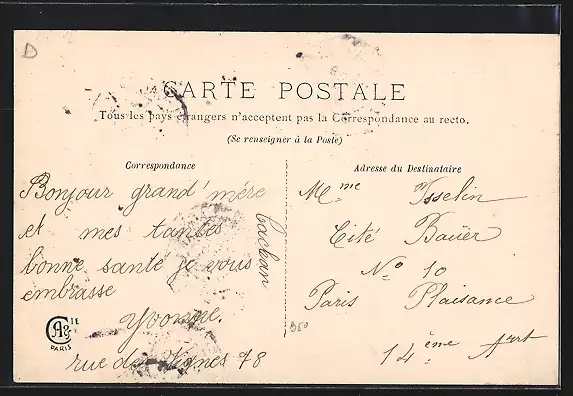 D
CARTE POSTALE
Tous les pays étrangers n'acceptent pas la Correspondance au recto.
(Se renseigner à la Poste)
Correspondance
Bonjour grand' mère
et mes tantes
bonne santé je vous
embrasse
Yvonne.
rue des Vignes 78
Cachan
C A & CIE
PARIS
Adresse du Destinataire
Mme Isselin
Cité Bauër
No 10
Paris Plaisance
14ème Arrt